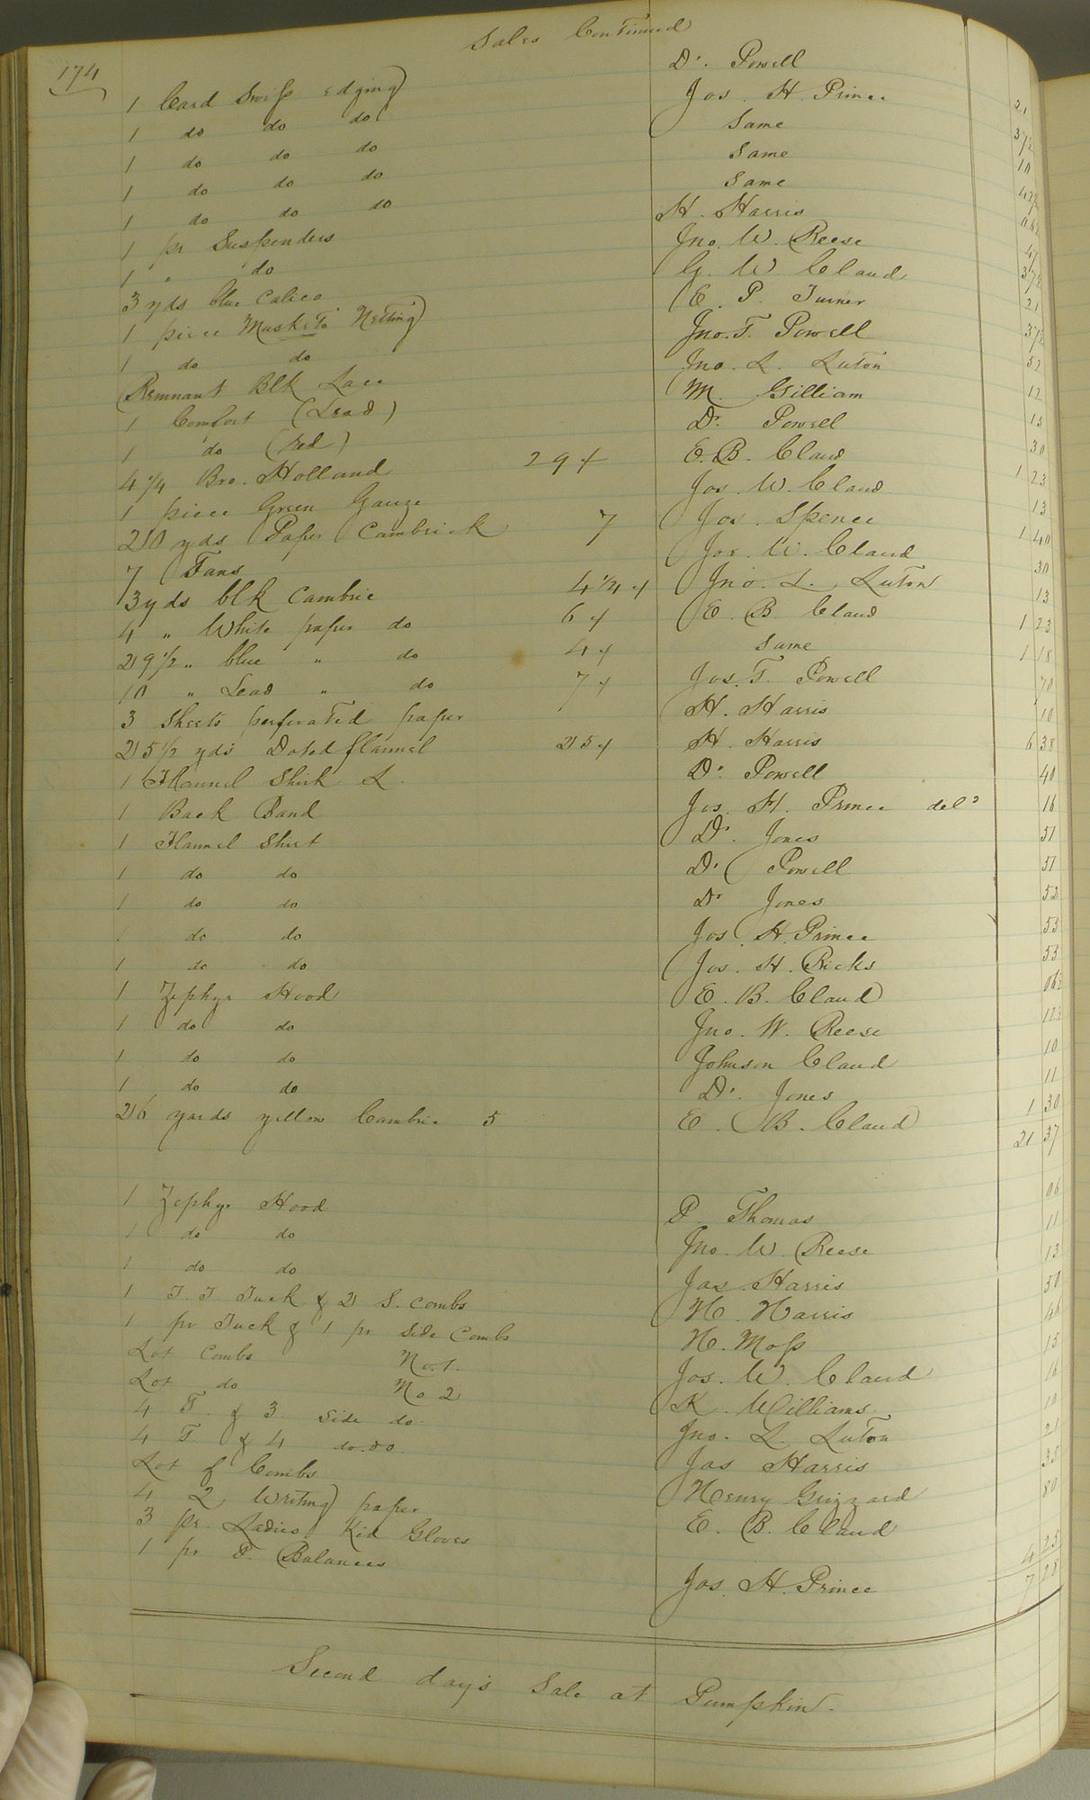 174
Sales Continued
1 Card Swiss edging Dr. Powell
1 do do do Jos. H. Prince 21
1 do do do Same 37½
1 do do do Same 10
1 do do do Same
1 pr Suspenders H. Harris
1 " do Jno. W. Reese
3 yds blue Calico G. W Claud 37½
1 piece Musketo Netting E. P. Turner 21
1 do do Jno. T. Powell 37½
Remnant Blk Lace Jno. L. Luton 52
1 Comfort (Lead) M. Gilliam 12
1 do (red) Dr. Powell 15
4 1/4 Bro. Holland 29 E. B. Claud 30
1 piece Green Gauze Jos. W. Claud 1 23
20 yds Paper Cambrick 7 Jos. Spence 13
7 Fans Jos. W. Claud 1 40
3 yds blk Cambric 4 1/4 Jno. L. Luton 30
4 " White paper do 6 E. B. Claud 13
29 1/2 " blue " do 4 Same 1 23
10 " Lead " do 7 Jos. T. Powell 1 18
3 Sheets perforated paper H. Harris 70
25 1/2 yds Doted flannel 25 H. Harris 10
1 Flannel Shirt L. Dr. Powell 6 38
1 Back Band Jos. H. Prince del 40
1 Flannel Shirt Dr. Jones 16
1 do do Dr. Powell 51
1 do do Dr Jones 51
1 do do Jos. H. Prince 52
1 do do Jos. H. Ricks 53
1 Zephyr Hood E. B. Claud 53
1 do do Jno. W. Reese
1 do do Johnson Claud
1 do do Dr. Jones 10
26 yards yellow Cambric 5 E. B. Claud 11
1 30
21 37
1 Zephyr Hood P. Thomas 06
1 do do Jno. W. Reese 11
1 do do Jas. Harris 13
1 T. T Tuck & 2 S. combs H. Harris 50
1 pr Tuck & 1 pr Side Combs H. Moss
Lot Combs No. 1. Jos. W. Claud 15
Lot do No 2 K. Williams 16
4 T. & 3 Side do Jno. L. Luton 10
4 T & 4 do. do Jas Harris 21
Lot of Combs Henry Grizzard 35
4 Q Writing paper E. B. Claud 80
3 pr. Ladies Kid Gloves
1 pr P. Balances Jos. H. Prince 4 25
7 28
Second day's Sale at Pumpkin.